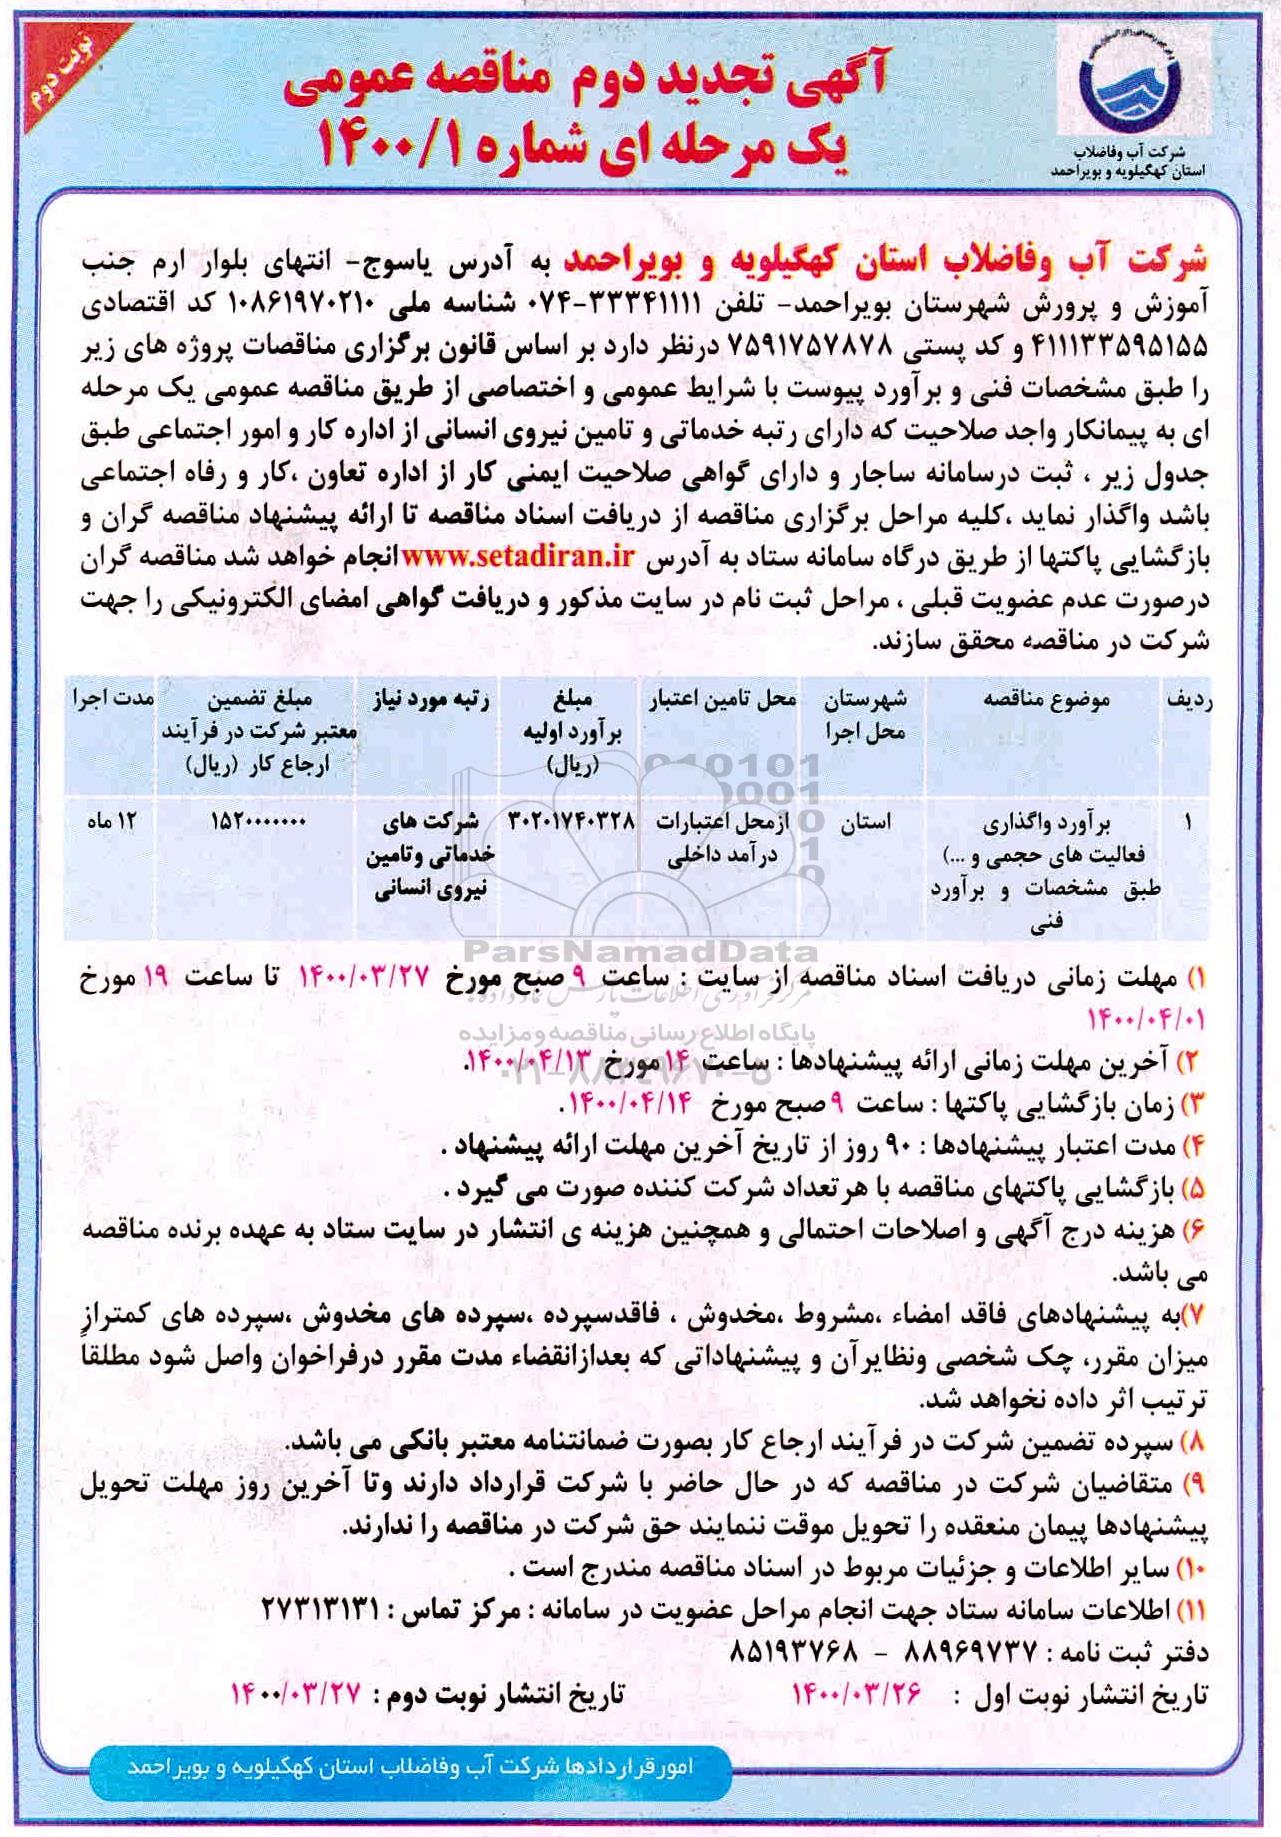 نوبت دوم
آگهی تجدید دوم مناقصه عمومی
یک مرحله ای شماره ۱۴۰۰/۱
شرکت آب وفاضلاب
استان کهگیلویه و بویراحمد
شرکت آب وفاضلاب استان کهگیلویه و بویراحمد به آدرس یاسوج- انتهای بلوار ارم جنب
آموزش و پرورش شهرستان بویراحمد- تلفن ۳۳۳۴۱۱۱۱-۰۷۴ شناسه ملی ۱۰۸۶۱۹۷۰۲۱۰ کد اقتصادی
۴۱۱۱۳۳۵۹۵۱۵۵ و کد پستی ۷۵۹۱۷۵۷۸۷۸ درنظر دارد بر اساس قانون برگزاری مناقصات پروژه های زیر
را طبق مشخصات فنی و برآورد پیوست با شرایط عمومی و اختصاصی از طریق مناقصه عمومی یک مرحله
ای به پیمانکار واجد صلاحیت که دارای رتبه خدماتی و تامین نیروی انسانی از اداره کار و امور اجتماعی طبق
جدول زیر ، ثبت درسامانه ساجار و دارای گواهی صلاحیت ایمنی کار از اداره تعاون ،کار و رفاه اجتماعی
باشد واگذار نماید ،کلیه مراحل برگزاری مناقصه از دریافت اسناد مناقصه تا ارائه پیشنهاد مناقصه گران و
بازگشایی پاکتها از طریق درگاه سامانه ستاد به آدرس www.setadiran.ir انجام خواهد شد مناقصه گران
درصورت عدم عضویت قبلی ، مراحل ثبت نام در سایت مذکور و دریافت گواهی امضای الکترونیکی را جهت
شرکت در مناقصه محقق سازند.
ردیف موضوع مناقصه شهرستان محل تامین اعتبار مبلغ رتبه مورد نیاز مبلغ تضمین مدت اجرا
محل اجرا برآورد اولیه معتبر شرکت در فرآیند
(ریال) ارجاع کار (ریال)
۱ برآورد واگذاری استان ازمحل اعتبارات ۳۰۲۰۱۷۴۰۳۲۸ شرکت های ۱۵۲۰۰۰۰۰۰۰ ۱۲ ماه
فعالیت های حجمی و ...) درآمد داخلی خدماتی وتامین
طبق مشخصات و برآورد نیروی انسانی
فنی
ParsNamadData
پایگاه اطلاع رسانی مناقصه و مزایده
۰۲۱-۸۸۳۴۹۶۷۰-۵
۱) مهلت زمانی دریافت اسناد مناقصه از سایت : ساعت ۹ صبح مورخ ۱۴۰۰/۰۳/۲۷ تا ساعت ۱۹ مورخ
۱۴۰۰/۰۴/۰۱
۲) آخرین مهلت زمانی ارائه پیشنهادها : ساعت ۱۴ مورخ ۱۴۰۰/۰۴/۱۳.
۳) زمان بازگشایی پاکتها : ساعت ۹ صبح مورخ ۱۴۰۰/۰۴/۱۴ .
۴) مدت اعتبار پیشنهادها : ۹۰ روز از تاریخ آخرین مهلت ارائه پیشنهاد .
۵) بازگشایی پاکتهای مناقصه با هر تعداد شرکت کننده صورت می گیرد .
۶) هزینه درج آگهی و اصلاحات احتمالی و همچنین هزینه ی انتشار در سایت ستاد به عهده برنده مناقصه
می باشد.
۷)به پیشنهادهای فاقد امضاء ،مشروط ،مخدوش ، فاقدسپرده ،سپرده های مخدوش ،سپرده های کمتراز
میزان مقرر، چک شخصی ونظایرآن و پیشنهاداتی که بعدازانقضاء مدت مقرر درفراخوان واصل شود مطلقاً
ترتیب اثر داده نخواهد شد.
۸) سپرده تضمین شرکت در فرآیند ارجاع کار بصورت ضمانتنامه معتبر بانکی می باشد.
۹) متقاضیان شرکت در مناقصه که در حال حاضر با شرکت قرارداد دارند وتا آخرین روز مهلت تحویل
پیشنهادها پیمان منعقده را تحویل موقت ننمایند حق شرکت در مناقصه را ندارند.
۱۰) سایر اطلاعات و جزئیات مربوط در اسناد مناقصه مندرج است .
۱۱) اطلاعات سامانه ستاد جهت انجام مراحل عضویت در سامانه : مرکز تماس : ۲۷۳۱۳۱۳۱
دفتر ثبت نامه : ۸۸۹۶۹۷۳۷ - ۸۵۱۹۳۷۶۸
تاریخ انتشار نوبت اول : ۱۴۰۰/۰۳/۲۶ تاریخ انتشار نوبت دوم : ۱۴۰۰/۰۳/۲۷
امورقراردادها شرکت آب وفاضلاب استان کهکیلویه و بویراحمد